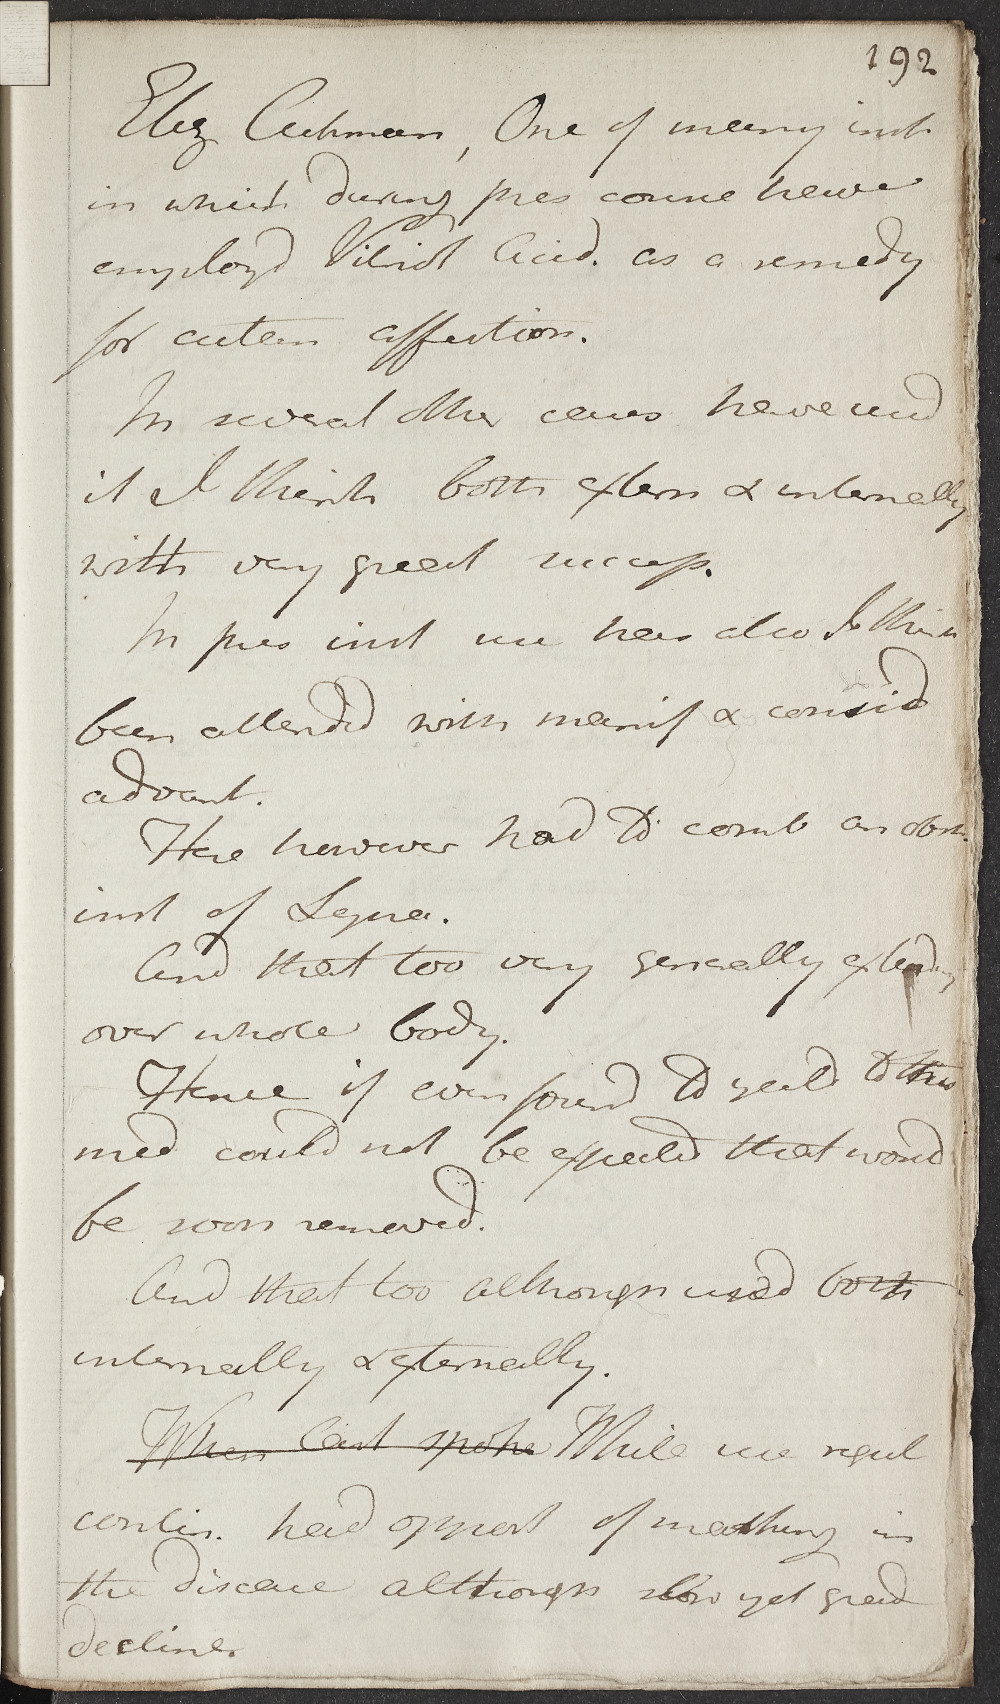 192
Eliz Cuhman, One of many inst
in which during pres course have
employd Vitriol Acid. as a remedy
for cutan affection.
In several other cases have used
it I think both extern & internally
with very great success.
In pres inst use has also I think
been attended with manif & consid
advant.
Here however had to comb an obst.
inst of Lepra.
And that too very generally extending
over whole body.
Hence if even found to yeild to this
med could not be expected that would
be soon removed.
And that too although used both
internally & externally.
When last spoke While use regul
contin. had opport of marking in
the disease although slow yet grad
decline.